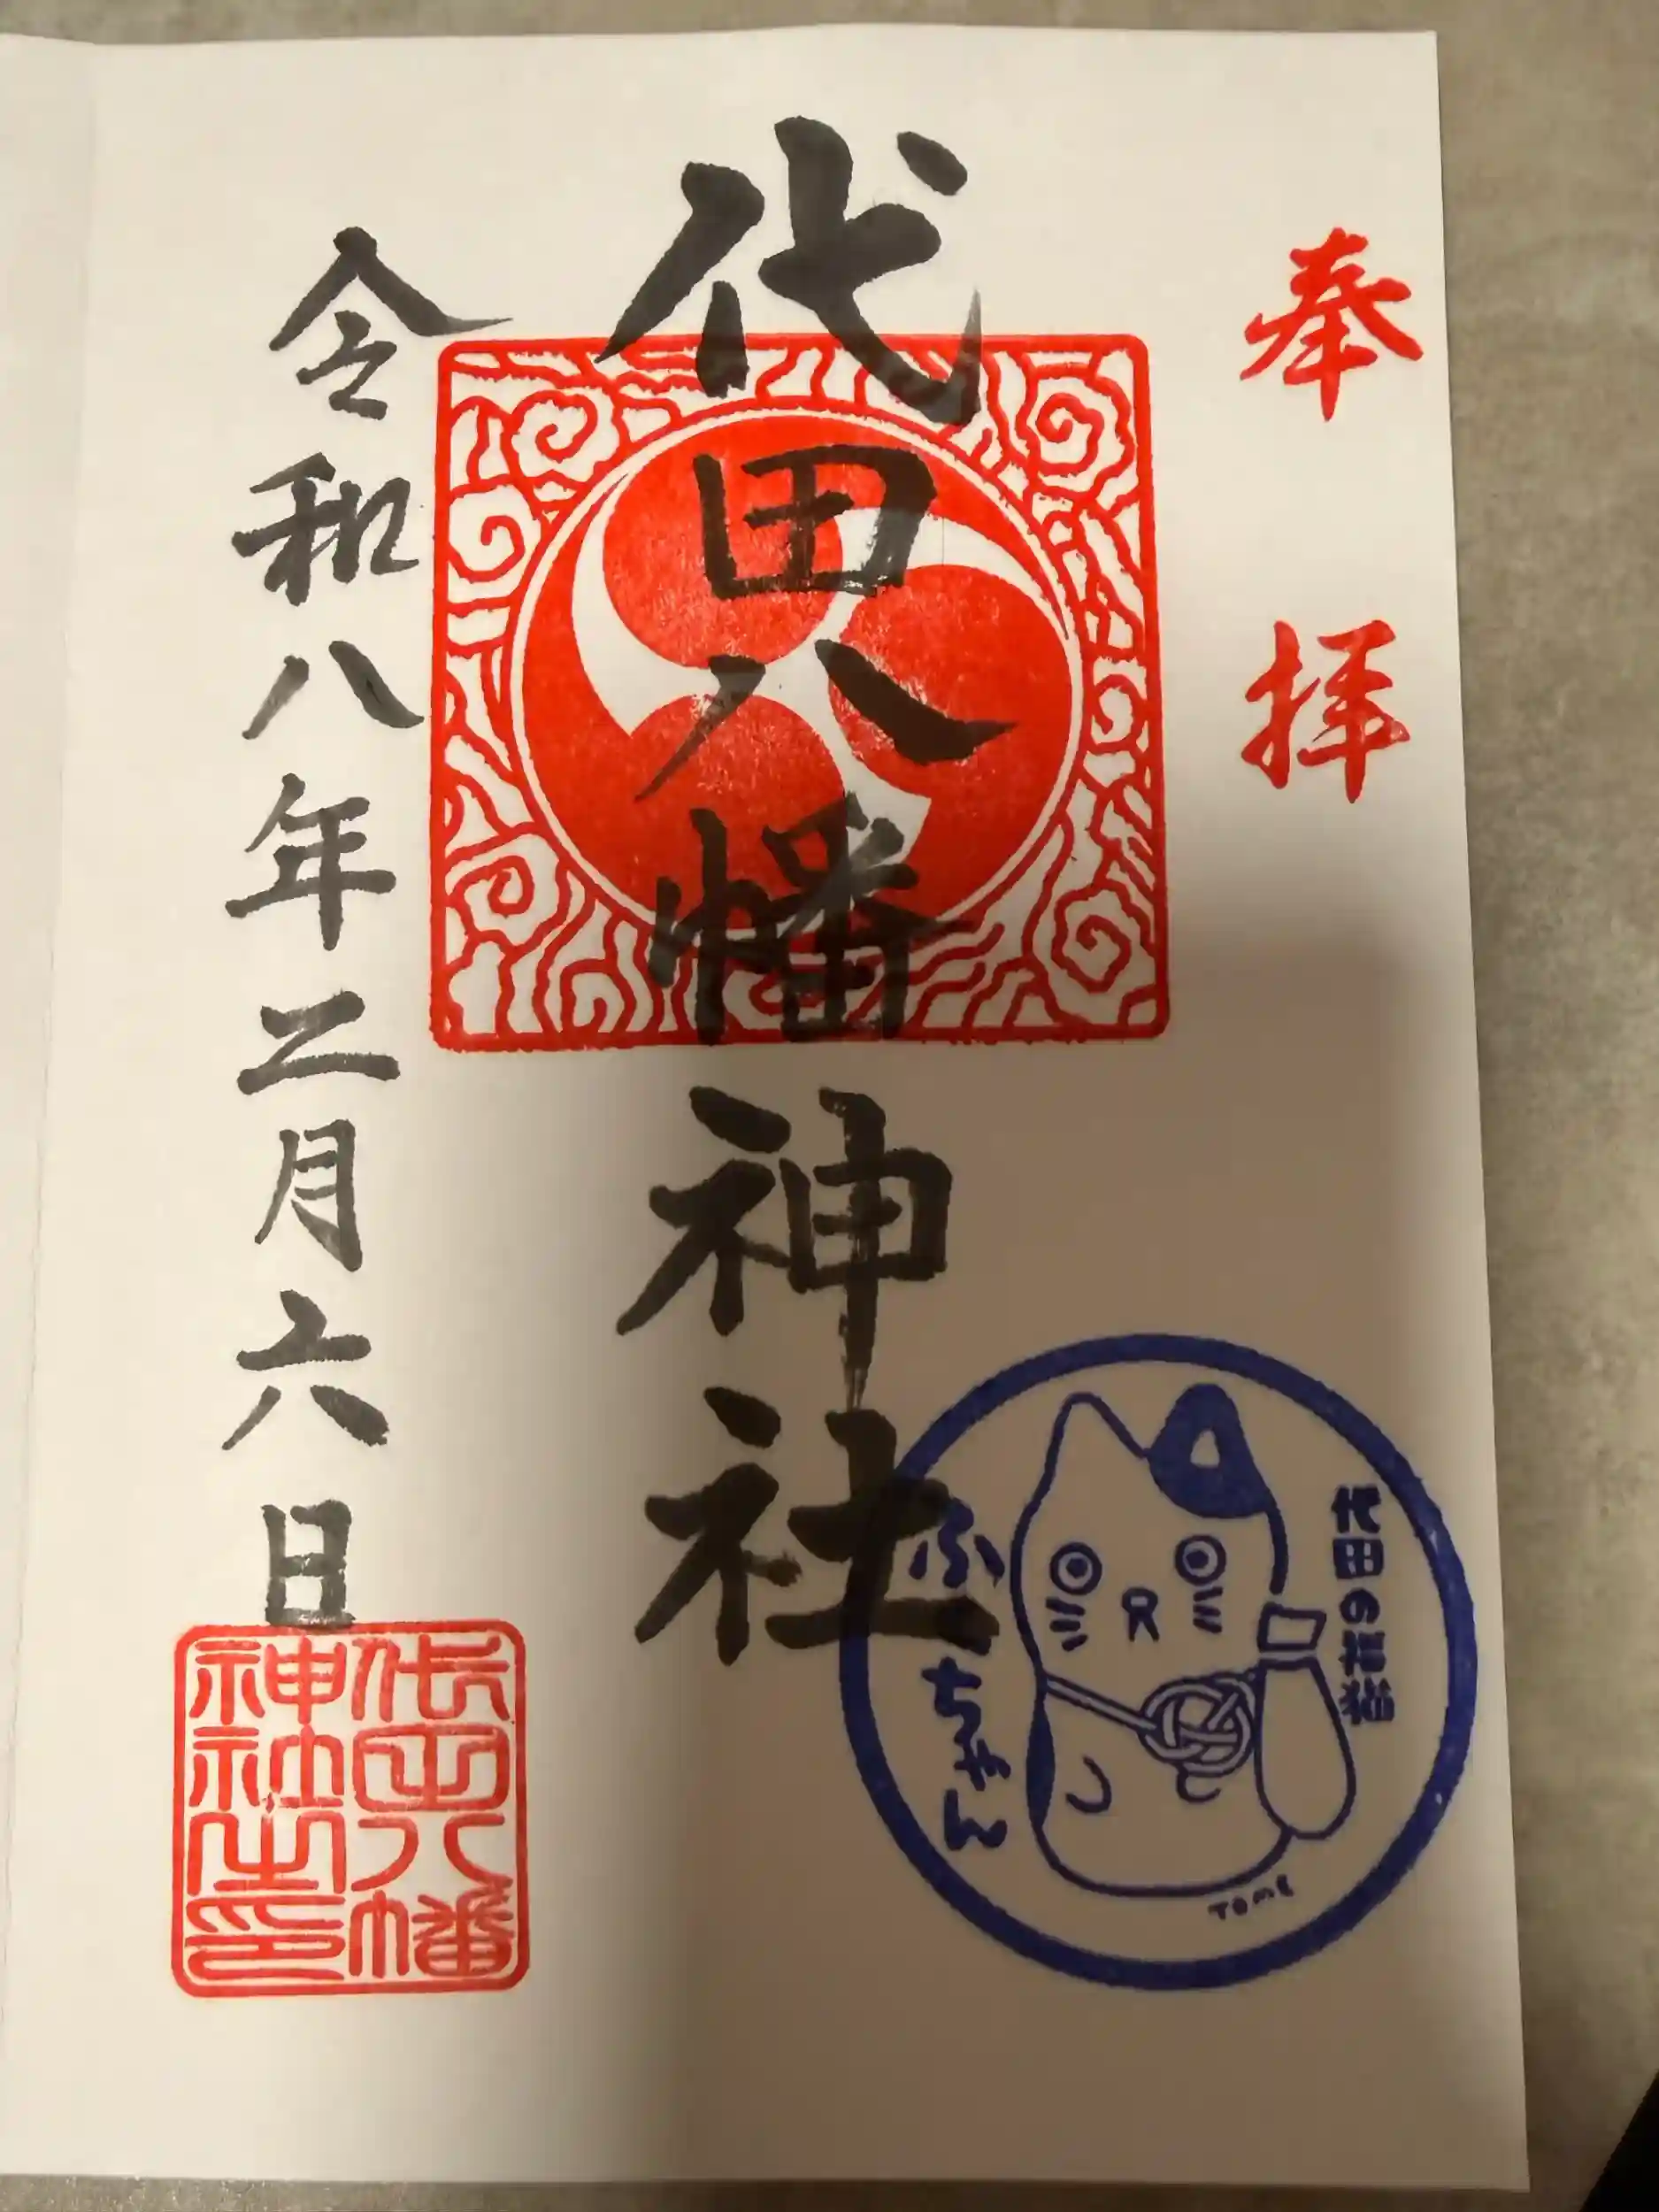 奉拝
代田八幡神社
令和八年二月六日
代田八幡
神社之印
代田の花猫
ふくちゃん
TOME